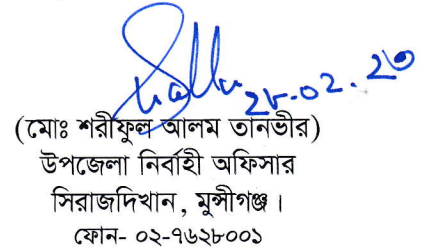 ২৮.০২.২৩
(মোঃ শরীফুল আলম তানভীর)
উপজেলা নির্বাহী অফিসার
সিরাজদিখান, মুন্সীগঞ্জ।
ফোন- ০২-৭৬২৮০০১